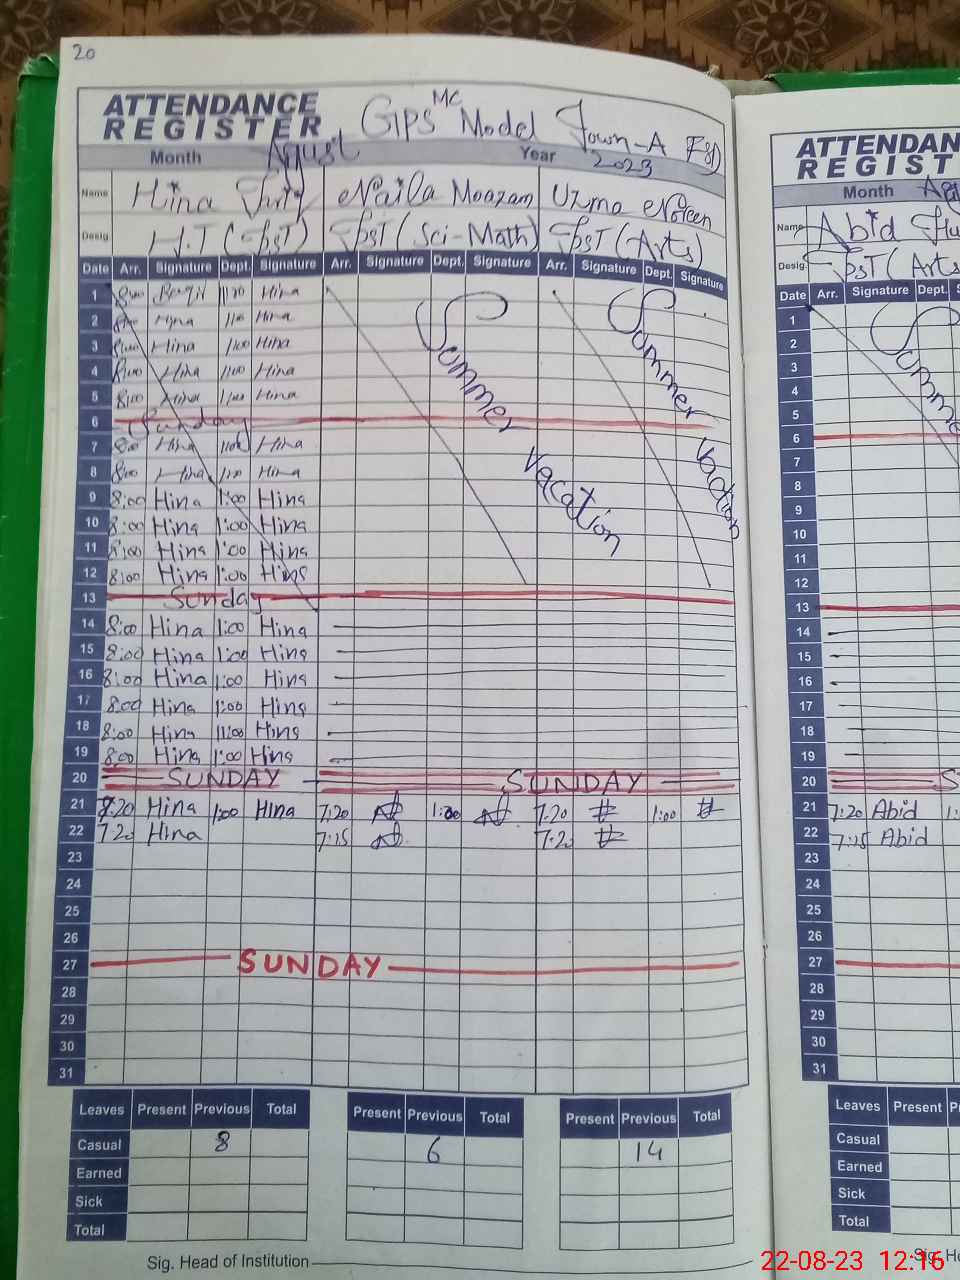 20
ATTENDANCE REGISTER GIPS MC Model Town-A FSD
Month August Year 2023
Name Hina Naila Moazam Uzma Noreen
Desig. H.T (EpsT) EpsT (Sci-Math) EpsT (Arts)
Date Arr. Signature Dept. Signature Arr. Signature Dept. Signature Arr. Signature Dept. Signature
1 8:00 11:00 Hina
2 8:00 Hina 11:00 Hina
3 8:00 Hina 11:00 Hina
4 8:00 Hina 11:00 Hina
5 8:00 Hina 11:00 Hina
Summer Vacation
Summer Vaction
6 Sunday
7 8:00 Hina 11:00 Hina
8 8:00 Hina 11:00 Hina
9 8:00 Hina 1:00 Hina
10 8:00 Hina 1:00 Hina
11 8:00 Hina 1:00 Hina
12 8:00 Hina 1:00 Hina
13 Sunday
14 8:00 Hina 1:00 Hina
15 8:00 Hina 1:00 Hina
16 8:00 Hina 1:00 Hina
17 8:00 Hina 1:00 Hina
18 8:00 Hina 11:00 Hina
19 8:00 Hina 1:00 Hina
20 SUNDAY SUNDAY
21 7:20 Hina 1:00 Hina 7:20 1:00 7:20 1:00
22 7:20 Hina 7:15 7:20
23
24
25
26
27 SUNDAY
28
29
30
31
Leaves Present Previous Total Present Previous Total Present Previous Total
Casual 8 6 14
Earned
Sick
Total
Sig. Head of Institution
ATTENDAN
REGIST
Month
Name Abid
Desig. EpsT (Arts
Date Arr. Signature Dept.
1
2
3
4
5
6
7
8
9
10
11
12
13
14
15
16
17
18
19
20 S
21 7:20 Abid
22 7:15 Abid
23
24
25
26
27
28
29
30
31
Leaves Present
Casual
Earned
Sick
Total
Sig. He
22-08-23 12:16